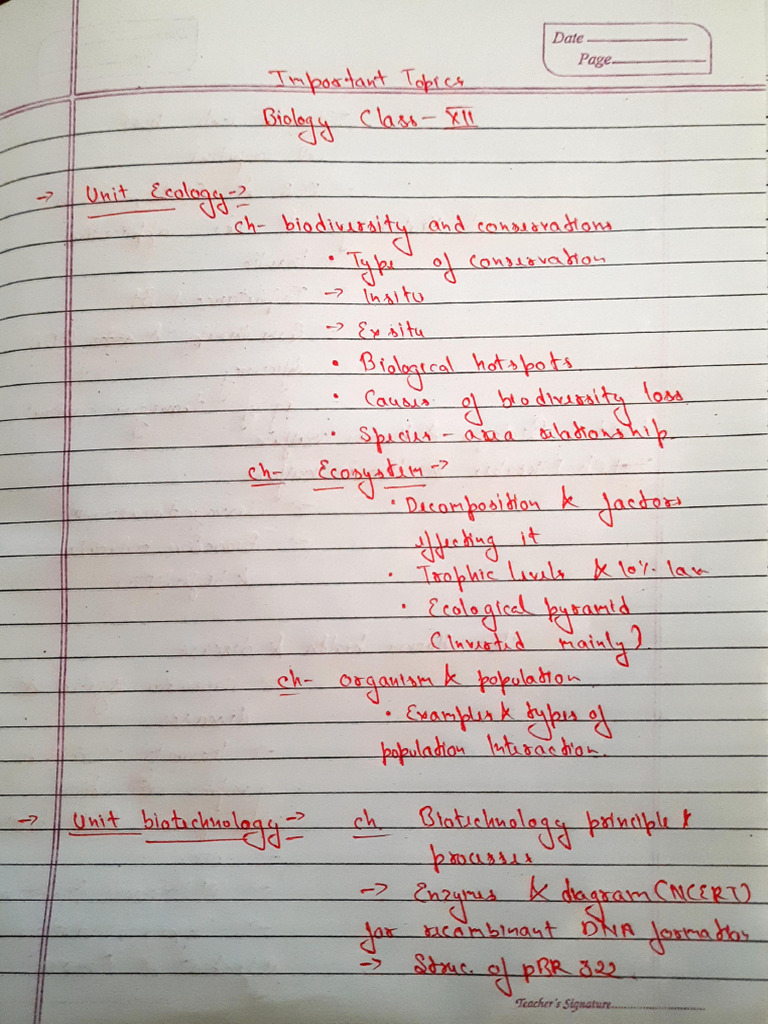 Date
Page
Important Topics
Biology Class - XII
→ Unit Ecology →
ch- biodiversity and conservations
• Type of conservation
→ Insitu
→ Exsitu
• Biological hotspots
• Causes of biodiversity loss
• Species - area relationship
ch- Ecosystem →
• Decomposition & factors
effecting it
• Trophic levels & 10% law
• Ecological pyramid
(Inverted mainly)
ch- organism & population
• Examples & types of
population Interaction.
→ Unit biotechnology → ch Biotechnology principle &
processes
→ Enzymes & diagram (NCERT)
for recombinant DNA formation
→ Struc. of pBR 322
Teacher's Signature